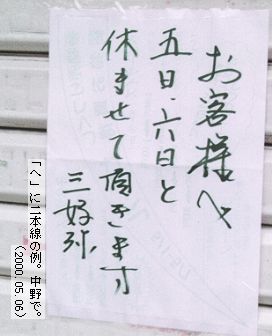 お客様へ
五日・六日と
休ませて頂きます
三好弥
「へ」に二本線の例。中野で。
（2000.05.06）